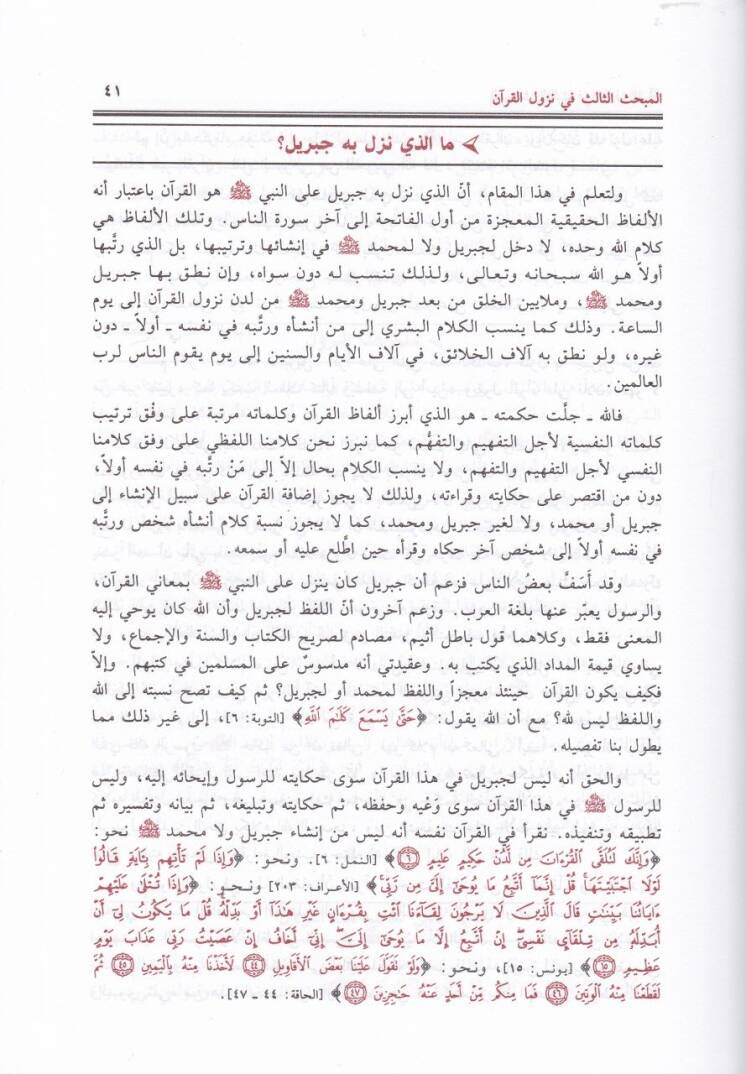 المبحث الثالث في نزول القرآن ٤١
ما الذي نزل به جبريل؟
ولتعلم في هذا المقام، أنّ الذي نزل به جبريل على النبي ﷺ هو القرآن باعتبار أنه
الألفاظ الحقيقية المعجزة من أول الفاتحة إلى آخر سورة الناس. وتلك الألفاظ هي
كلام الله وحده، لا دخل لجبريل ولا لمحمد ﷺ في إنشائها وترتيبها، بل الذي رتَّبها
أولاً هـو الله سبحانه وتعـالى، ولـذلـك تنـسب لـه دون سـواه، وإن نطـق بهـا جبـريل
ومحمد ﷺ، وملايين الخلق من بعد جبريل ومحمد ﷺ من لدن نزول القرآن إلى يوم
الساعة. وذلك كما ينسب الكلام البشري إلى من أنشأه ورتَّبه في نفسه ـ أولاً ـ دون
غيره، ولو نطق به آلاف الخلائق، في آلاف الأيام والسنين إلى يوم يقوم الناس لرب
العالمين.
فالله ـ جلَّت حكمته ـ هو الذي أبرز ألفاظ القرآن وكلماته مرتبة على وفْق ترتيب
كلماته النفسية لأجل التفهيم والتفهُّم، كما نبرز نحن كلامنا اللفظي على وفق كلامنا
النفسي لأجل التفهيم والتفهم، ولا ينسب الكلام بحال إلاّ إلى مَنْ رتَّبه في نفسه أولاً،
دون من اقتصر على حكايته وقراءته، ولذلك لا يجوز إضافة القرآن على سبيل الإنشاء إلى
جبريل أو محمد، ولا لغير جبريل ومحمد، كما لا يجوز نسبة كلام أنشأه شخص ورتَّبه
في نفسه أولاً إلى شخص آخر حكاه وقرأه حين اطَّلع عليه أو سمعه.
وقد أسَفَّ بعضُ الناس فزعم أن جبريل كان ينزل على النبي ﷺ بمعاني القرآن،
والرسول يعبّر عنها بلغة العرب. وزعم آخرون أنّ اللفظ لجبريل وأن الله كان يوحي إليه
المعنى فقط، وكلاهما قول باطل أثيم، مصادم لصريح الكتاب والسنة والإجماع، ولا
يساوي قيمة المداد الذي يكتب به. وعقيدتي أنه مدسوسٌ على المسلمين في كتبهم. وإلاّ
فكيف يكون القرآن حينئذ معجزاً واللفظ لمحمد أو لجبريل؟ ثم كيف تصح نسبته إلى الله
واللفظ ليس لله؟ مع أن الله يقول: ﴿حَتَّىٰ يَسْمَعَ كَلَٰمَ ٱللَّهِ﴾ [التوبة: ٦]، إلى غير ذلك مما
يطول بنا تفصيله.
والحق أنه ليس لجبريل في هذا القرآن سوى حكايته للرسول وإيحائه إليه، وليس
للرسول ﷺ في هذا القرآن سوى وَعْيه وحفظه، ثم حكايته وتبليغه، ثم بيانه وتفسيره ثم
تطبيقه وتنفيذه. نقرأ في القرآن نفسه أنه ليس من إنشاء جبريل ولا محمد ﷺ نحو:
﴿وَإِنَّكَ لَتُلَقَّى ٱلْقُرْءَانَ مِن لَّدُنْ حَكِيمٍ عَلِيمٍ ٦﴾ [النمل: ٦]. ونحو: ﴿وَإِذَا لَمْ تَأْتِهِم بِـَٔايَةٍ قَالُوا۟
لَوْلَا ٱجْتَبَيْتَهَا ۚ قُلْ إِنَّمَآ أَتَّبِعُ مَا يُوحَىٰٓ إِلَىَّ مِن رَّبِّى﴾ [الأعراف: ٢٠٣] ونحـو: ﴿وَإِذَا تُتْلَىٰ عَلَيْهِمْ
ءَايَاتُنَا بَيِّنَٰتٍ قَالَ ٱلَّذِينَ لَا يَرْجُونَ لِقَآءَنَا ٱئْتِ بِقُرْءَانٍ غَيْرِ هَٰذَآ أَوْ بَدِّلْهُ قُلْ مَا يَكُونُ لِىٓ أَنْ
أُبَدِّلَهُۥ مِن تِلْقَآئِ نَفْسِىٓ إِنْ أَتَّبِعُ إِلَّا مَا يُوحَىٰٓ إِلَىَّ إِنِّىٓ أَخَافُ إِنْ عَصَيْتُ رَبِّى عَذَابَ يَوْمٍ
عَظِيمٍ ١٥﴾ [يونس: ١٥]، ونحو: ﴿وَلَوْ تَقَوَّلَ عَلَيْنَا بَعْضَ ٱلْأَقَاوِيلِ ٤٤ لَأَخَذْنَا مِنْهُ بِٱلْيَمِينِ ٤٥ ثُمَّ
لَقَطَعْنَا مِنْهُ ٱلْوَتِينَ ٤٦ فَمَا مِنكُم مِّنْ أَحَدٍ عَنْهُ حَٰجِزِينَ ٤٧﴾ [الحاقة: ٤٤ ـ ٤٧].